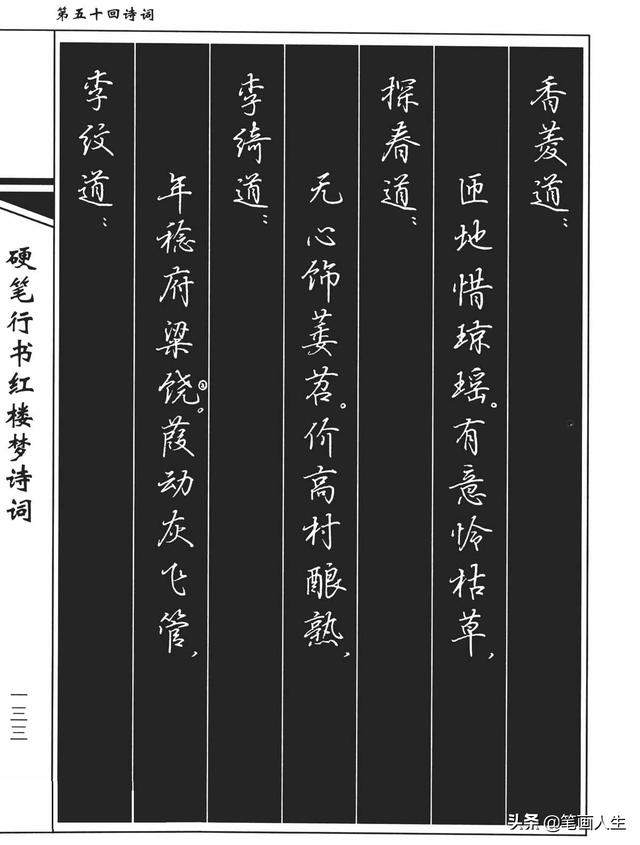 第五十回诗词
香菱道：
匝地惜琼瑶。有意怜枯草，
探春道：
无心饰萎苕。价高村酿熟，
李绮道：
年稔府梁饶③。葭动灰飞管，
李纹道：
硬笔行书红楼梦诗词
一三三
头条@笔画人生